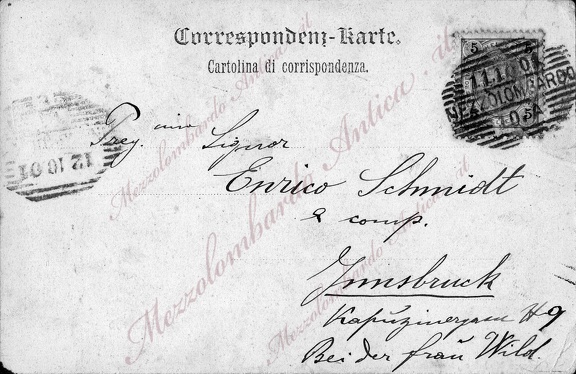 Correspondenz-Karte.
Cartolina di corrispondenza.
5 5
11.1 01
MEZZOLOMBARDO
12 10 01
Preg. mo Signor
Enrico Schmidt
& comp.
Innsbruck
Kapuzinergasse No 9
Bei der frau Wild.
Mezzolombardo Antica.it
Mezzolombardo Antica.it
Mezzolombardo Antica.it